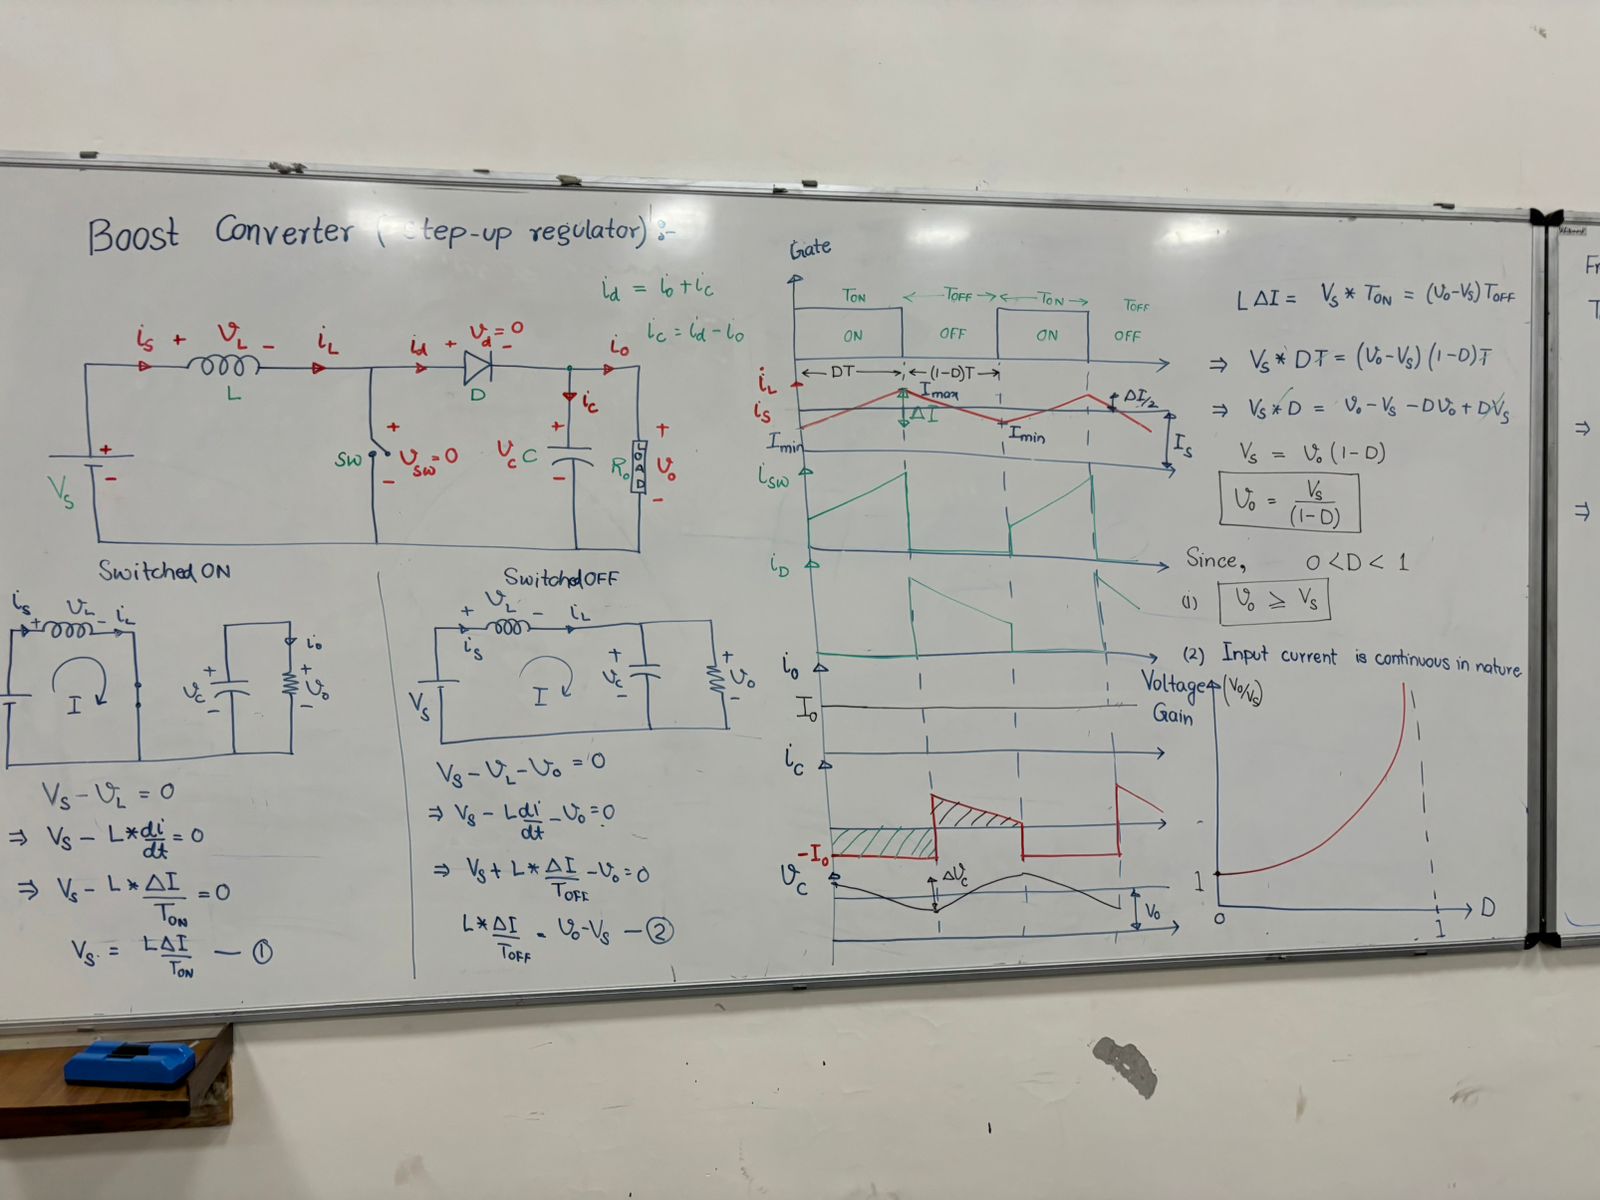 Boost Converter (Step-up regulator):-
i_d = i_o + i_c
i_c = i_d - i_o
i_s + V_L - i_L i_d + V_d=0 - i_o
L D i_c
+ + + +
SW V_sw=0 V_c C R_o LOAD V_o
V_s - - - -
Switched ON
i_s V_L i_L
+ -
i_o
I + V_c - + V_o -
V_s - V_L = 0
⇒ V_s - L*di/dt = 0
⇒ V_s - L*ΔI/T_ON = 0
V_s = LΔI/T_ON — ①
Switched OFF
+ V_L - i_L
i_s
V_s + - I + V_c - + V_o -
V_s - V_L - V_o = 0
⇒ V_s - L di/dt - V_o = 0
⇒ V_s + L*ΔI/T_OFF - V_o = 0
L*ΔI/T_OFF = V_o - V_s — ②
Gate
T_ON T_OFF T_ON T_OFF
ON OFF ON OFF
DT (1-D)T
i_L I_max ΔI/2
i_s ΔI
I_min I_min I_s
i_sw
i_D
i_o
I_o
i_c
-I_o
V_c ΔV_c
V_o
LΔI = V_s * T_ON = (V_o-V_s) T_OFF
⇒ V_s * DT = (V_o-V_s) (1-D)T
⇒ V_s * D = V_o - V_s - DV_o + DV_s
V_s = V_o (1-D)
V_o = V_s/(1-D)
Since, 0 < D < 1
(i) V_o ≥ V_s
(2) Input current is continuous in nature
Voltage Gain (V_o/V_s)
1
0 1 D
Fr
T
⇒
⇒